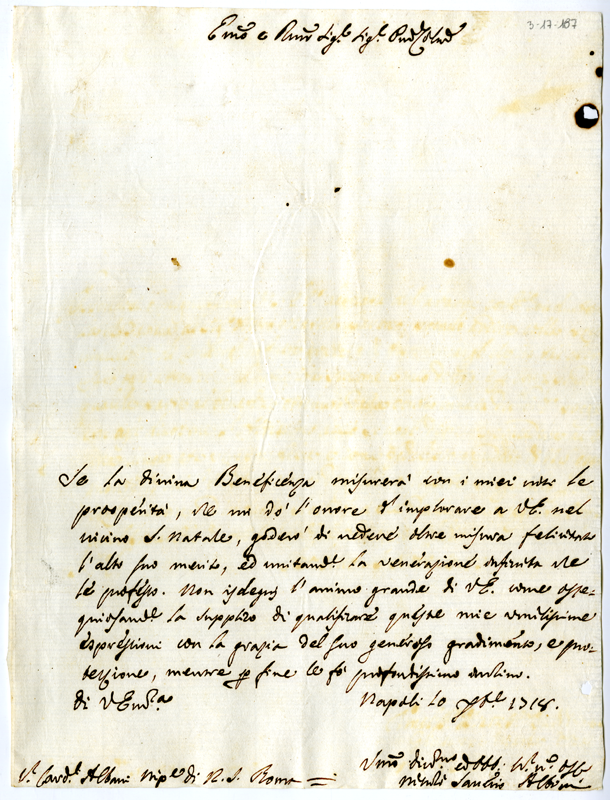 3-17-187
Emo e Rmo Sig.r Sig.r Pne Colmo
Se la divina Beneficenza misurerà con i miei voti le
prosperità, che mi dò l'onore d'implorare a V.E. nel
vicino S. Natale, goderò di vedere oltre misura felicitato
l'alto suo merito, ed umiliand.e la venerazione infinita che
le professo. Non isdegni l'animo grande di V.E. come osse-
quiosam.e la supplico di qualificare queste mie umilissime
espressioni con la grazia del suo generoso gradimento, e pro-
tezione, mentre per fine le fò profondissimo inchino.
di V. Em.a Napoli 10 Xbre 1718.
S.r Card.e Albani Nip.e di N. S. Roma
Umo ed obb.